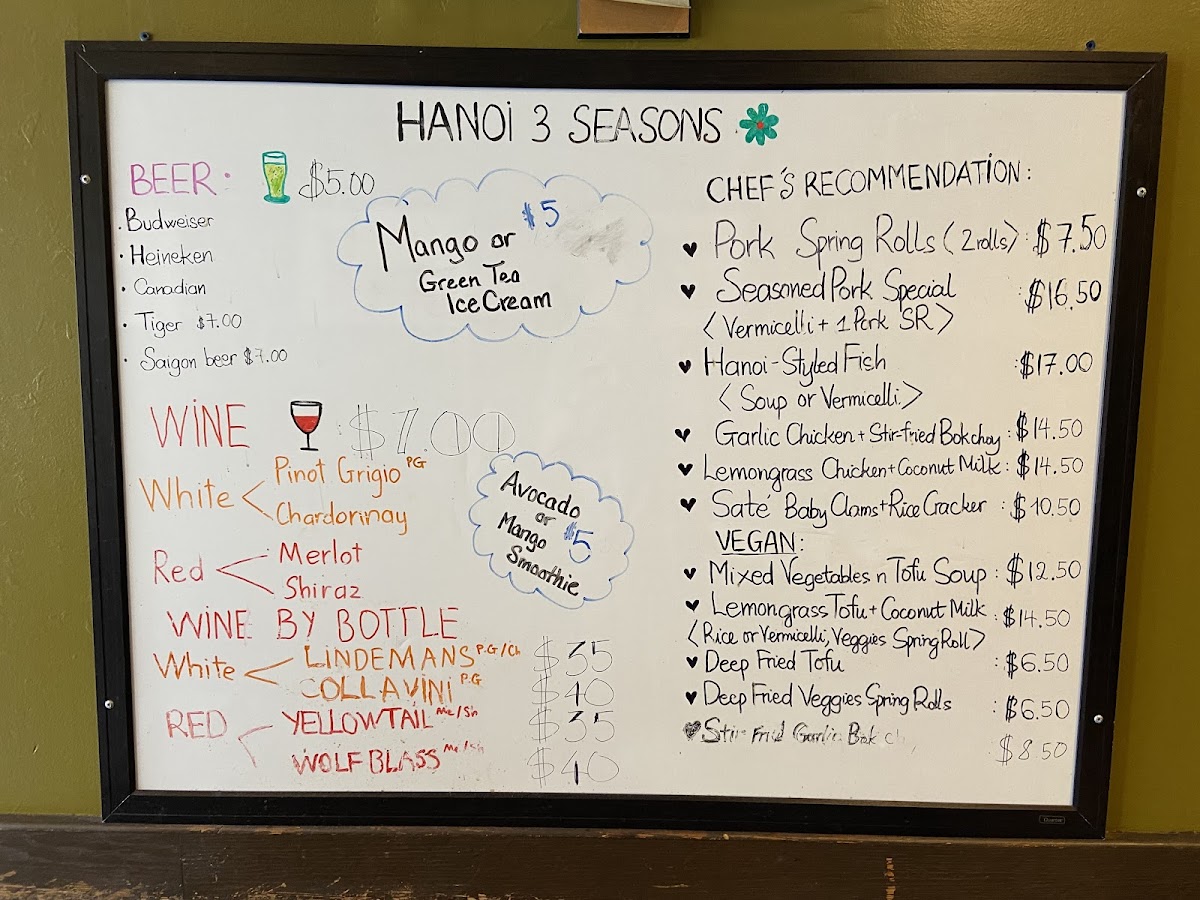 HANOI 3 SEASONS
BEER: $5.00
· Budweiser
· Heineken
· Canadian
· Tiger $7.00
· Saigon beer $7.00
Mango or $5
Green Tea
Ice Cream
WINE : $7.00
White < Pinot Grigio PG
Chardorinay
Red < Merlot
Shiraz
Avocado
or
Mango $5
Smoothie
WINE BY BOTTLE
White < LINDEMANS P.G/Ch $35
COLLAVINI P.G $40
RED < YELLOWTAIL Me/Sh $35
WOLF BLASS Me/Sh $40
CHEF'S RECOMMENDATION:
♥ Pork Spring Rolls (2 rolls) : $7.50
♥ Seasoned Pork Special : $16.50
<Vermicelli + 1 Pork SR>
♥ Hanoi-Styled Fish : $17.00
<Soup or Vermicelli>
♥ Garlic Chicken + Stir-fried Bokchoy : $14.50
♥ Lemongrass Chicken + Coconut Milk : $14.50
♥ Saté Baby Clams + Rice Cracker : $10.50
VEGAN:
♥ Mixed Vegetables n Tofu Soup : $12.50
♥ Lemongrass Tofu + Coconut Milk : $14.50
<Rice or Vermicelli, Veggies Spring Roll>
♥ Deep Fried Tofu : $6.50
♥ Deep Fried Veggies Spring Rolls : $6.50
♥ Stir Fried Garlic Bok ch $8.50